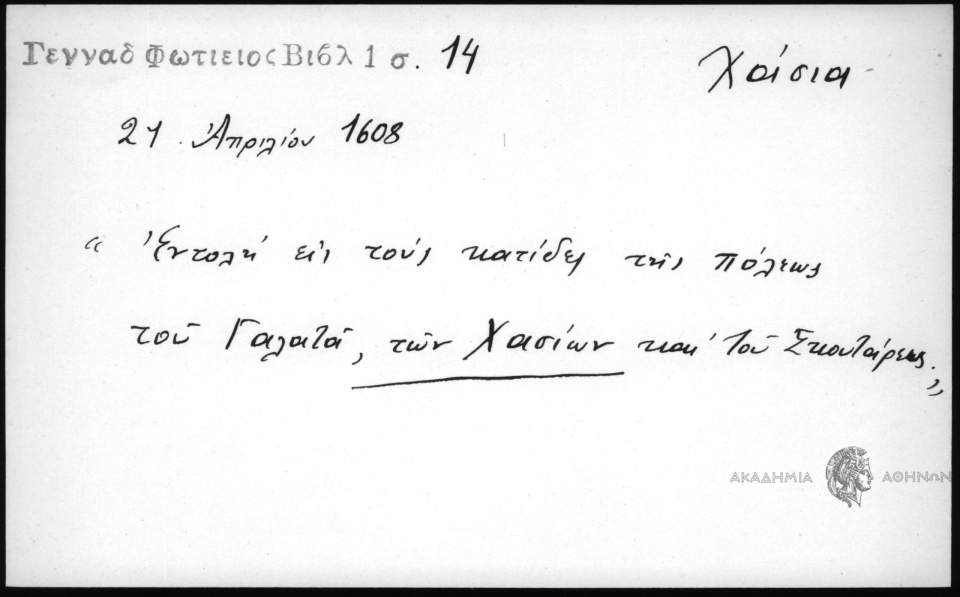 Γενναδ Φωτιειος Βιβλ 1 σ. 14
Χάσια
21 Ἀπριλίου 1608
“ Ἐντολή εἰς τούς κατίδες τῆς πόλεως
τοῦ Γαλατᾶ, τῶν Χασίων καί τοῦ Σκουτάρεως. „
ΑΚΑΔΗΜΙΑ ΑΘΗΝΩΝ